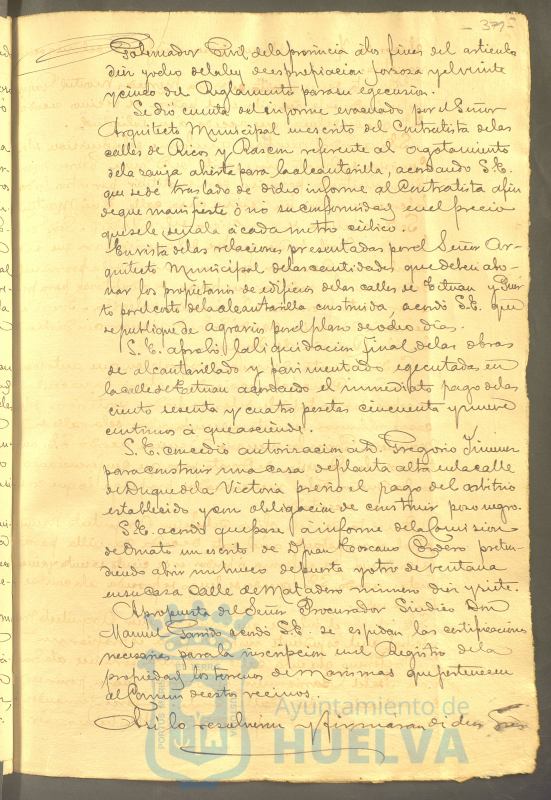 - 371 -
Gobernador Civil de la provincia á los fines del articulo
diez y ocho de la ley de expropiacion forzosa y el veinte
y cinco del Reglamento para su egecusion.
Se dió cuenta del informe evacuado por el Señor
Arquitecto Municipal en escrito del Contratista de las
calles de Ricos y Rascon referente al agotamiento
de la zanja abierta para la alcantarilla, acordando S.E.
que se dé traslado de dicho informe al Contratista a fin
de que manifieste ó no su conformidad en el precio
que se le señala á cada metro cúbico.
En vista de las relaciones presentadas por el Señor Ar-
quitecto Municipal de las cantidades que deben abo-
nar los propietarios de edificios de las calles de Tetuan y Puer-
to por el coste de la alcantarilla construida, acordó S.E. que
se publique de agravios por el plazo de ocho dias.
S.E. aprobó la liquidacion final de las obras
de alcantarillado y pavimentado egecutadas en
la calle de Tetuan acordando el inmediato pago de las
ciento sesenta y cuatro pesetas cincuenta y nueve
centimos á que asciende.
S.E. concedió autorizacion a D. Gregorio Jimenez
para construir una casa de planta alta en la calle
de Duque de la Victoria previo el pago del arbitrio
establecido y con obligacion de construir pozo negro.
S.E. acordó que pase á informe de la Comision
de Ornato un escrito de D. Juan Toscano Cordero preten-
diendo abrir un hueco de puerta y otro de ventana
en su casa calle de Matadero numero diez y siete.
A propuesta del Señor Procurador Sindico Don
Manuel Garrido acordó S.E. se espidan las certificaciones
necesarias para la inscripcion en el Registro de la
propiedad los terrenos de marismas que pertenecen
al Comun de estos vecinos.
Asi lo resolvieron y firmarán dichos Sres
Ayuntamiento de
HUELVA